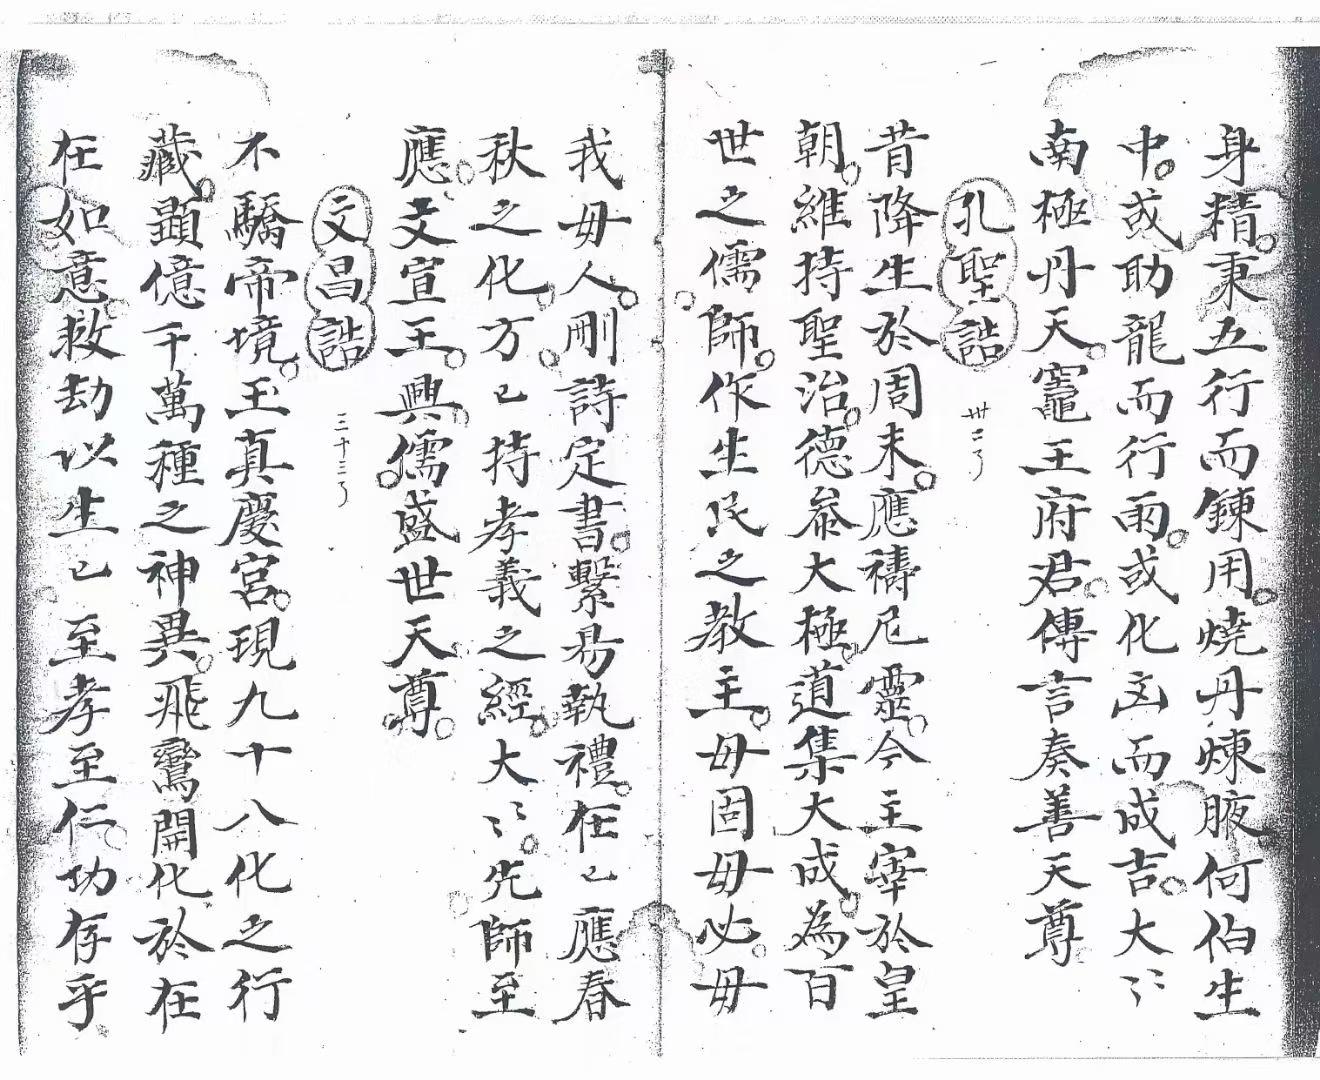 身精秉五行而鍊用燒丹煉腋何伯生
中或助龍而行雨或化凶而成吉大〻
南極丹天竈王府君傳言奏善天尊
孔聖誥
卅二了
昔降生於周末應禱尼靈今主宰於皇
朝維持聖治德叅大極道集大成為百
世之儒師作生民之教主毋固毋必毋
我毋人刪詩定書繫易執禮在己應春
秋之化方已持孝義之經大〻先師至
應文宣王興儒盛世天尊
文昌誥
三十三了
不驕帝境玉真慶宮現九十八化之行
藏顕億千萬種之神異飛鸞開化於在
在如意救劫以生已至孝至仁功存乎